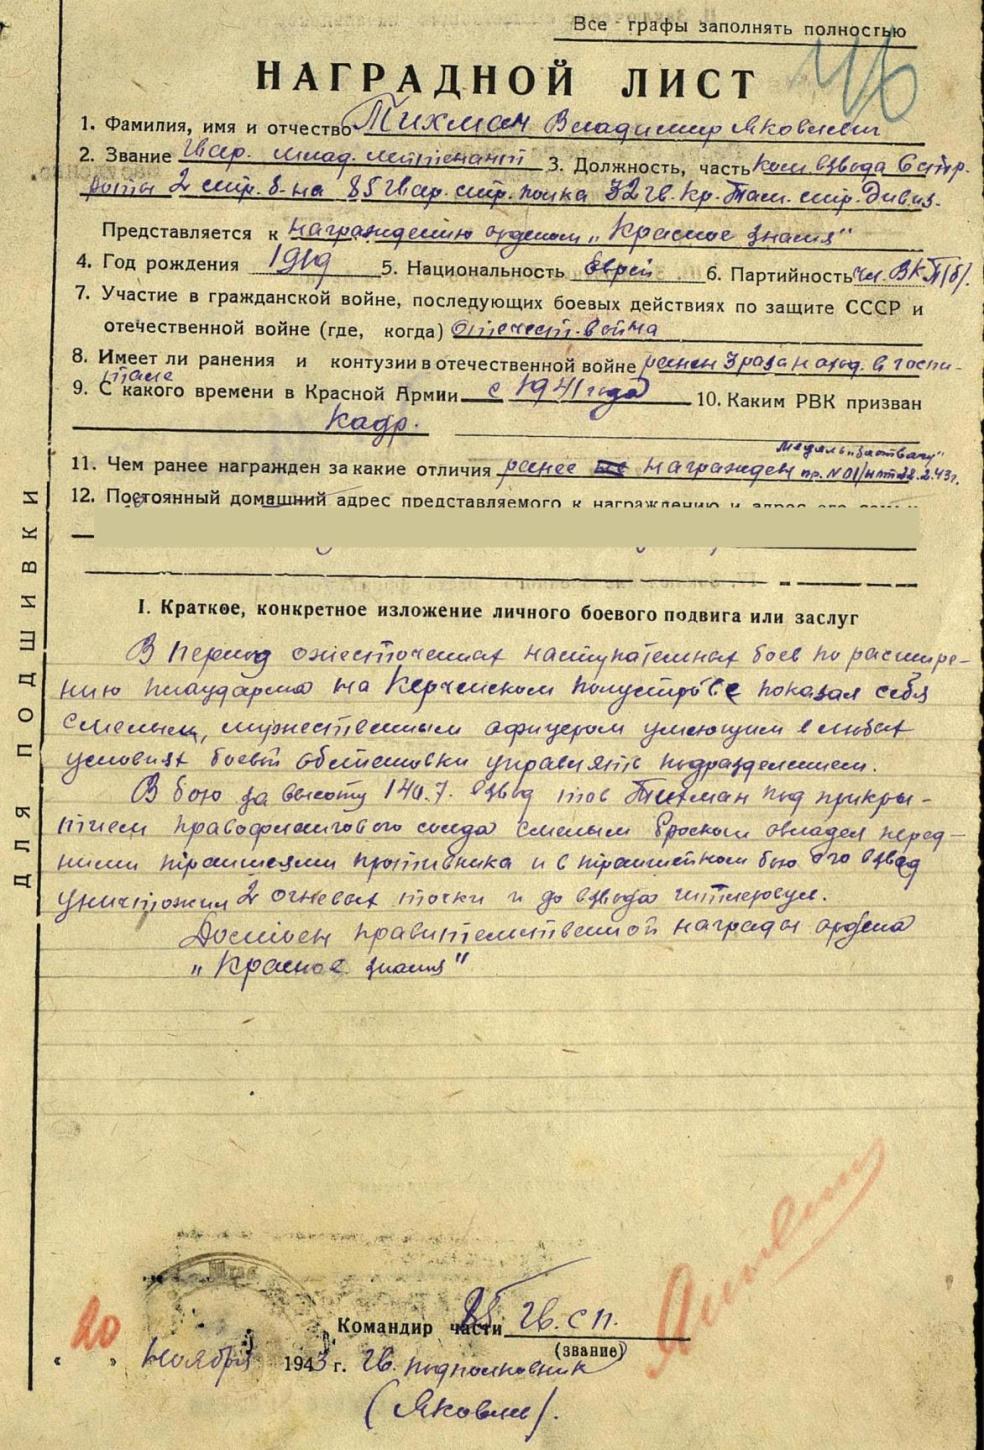 Все графы заполнять полностью
46
НАГРАДНОЙ ЛИСТ
1. Фамилия, имя и отчество Тихман Владимир Яковлевич
2. Звание Гвар. млад. лейтенант 3. Должность, часть Ком. взвода 6 стр.
роты 2 стр. б-на 85 Гвар. стр. полка 32 гв. Кр. Там. стр. Дивиз.
Представляется к награждению орденом „Красное Знамя"
4. Год рождения 1919 5. Национальность еврей 6. Партийность Чл. ВКП(б).
7. Участие в гражданской войне, последующих боевых действиях по защите СССР и
отечественной войне (где, когда) Отечест. война
8. Имеет ли ранения и контузии в отечественной войне ранен 3 раза наход. в госпи-
тале
9. С какого времени в Красной Армии с 1941 года 10. Каким РВК призван
Кадр.
медаль „за отвагу"
11. Чем ранее награжден за какие отличия ранее награжден пр. N 01/н от 22.2.43г.
12. Постоянный домашний адрес представляемого к награждению и адрес его
I. Краткое, конкретное изложение личного боевого подвига или заслуг
В период ожесточенных наступательных боев по расшире-
нию плацдарма на Керченском полуострове показал себя
смелым, мужественным офицером умеющим в любых
условиях боевой обстановки управлять подразделением.
В бою за высоту 140.7. взвод тов Тихман под прикры-
тием правофлангового соседа смелым броском овладел перед-
ними траншеями противника и в траншейном бою его взвод
уничтожил 2 огневых точки и до взвода гитлеровцев.
Достоен правительственной награды ордена
„Красное знамя"
Командир части 85 гв. с п.
(звание)
„ 20 " Ноября 1943 г. гв. подполковник
(Яковлев).
ДЛЯ ПОДШИВКИ